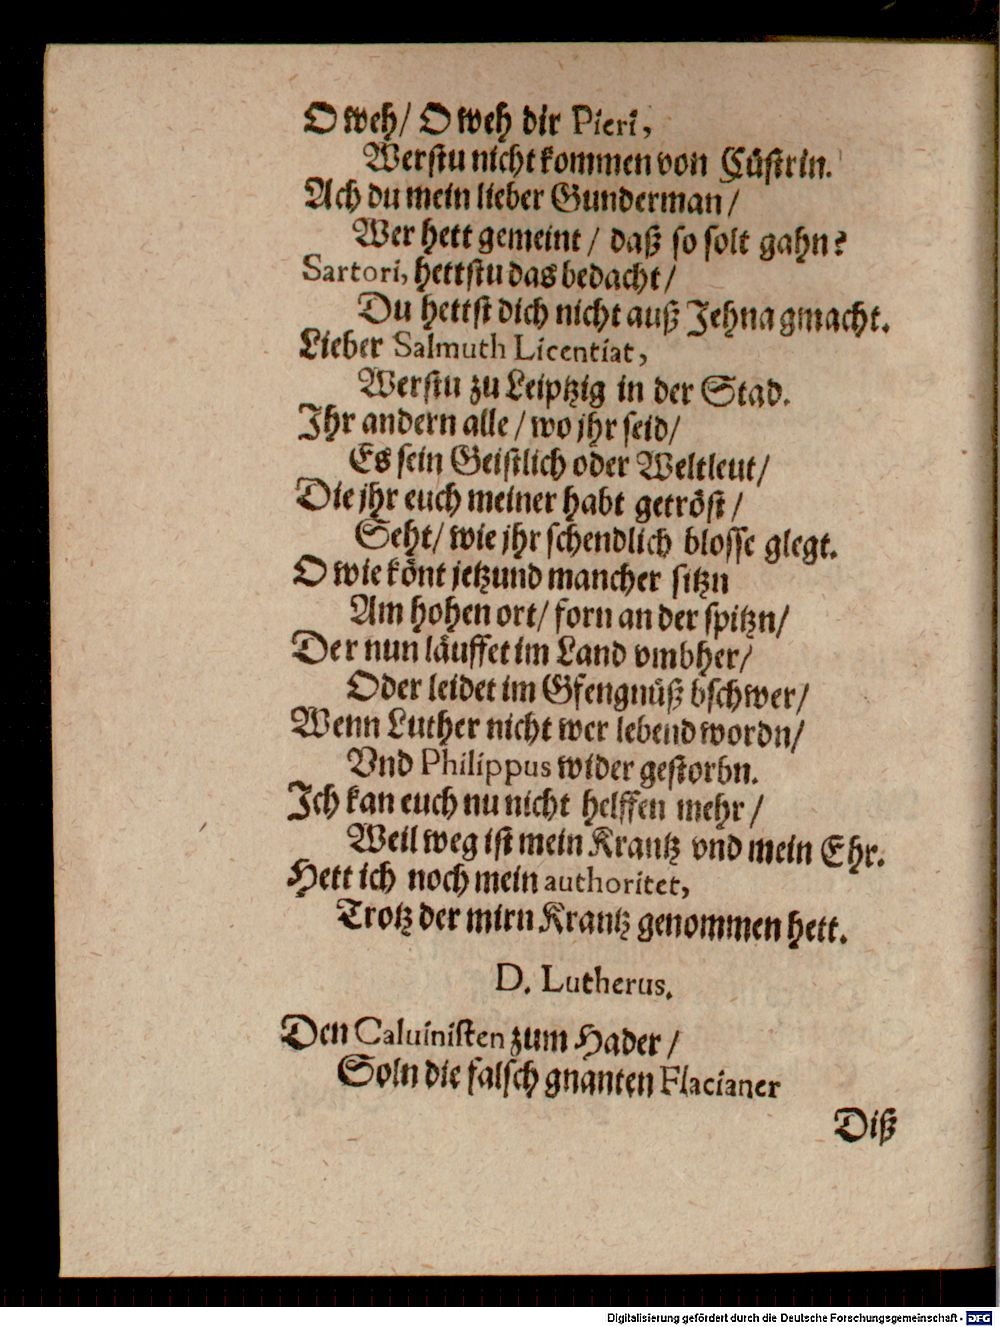 O weh/ O weh dir Pieri,
Werstu nicht kommen von Cüstrin.
Ach du mein lieber Gunderman/
Wer hett gemeint/ daß so solt gahn?
Sartori, hettstu das bedacht/
Du hettst dich nicht auß Jehna gmacht.
Lieber Salmuth Licentiat,
Werstu zu Leiptzig in der Stad.
Jhr andern alle/ wo jhr seid/
Es sein Geistlich oder Weltleut/
Die jhr euch meiner habt getröst/
Seht/ wie jhr schendlich blosse glegt.
O wie könt jetzund mancher sitzn
Am hohen ort/ forn an der spitzn/
Der nun läuffet im Land vmbher/
Oder leidet im Gfengnüß bschwer/
Wenn Luther nicht wer lebend wordn/
Vnd Philippus wider gestorbn.
Jch kan euch nu nicht helffen mehr/
Weil weg ist mein Krantz vnd mein Ehr.
Hett ich noch mein authoritet,
Trotz der mirn Krantz genommen hett.
D. Lutherus.
Den Caluinisten zum Hader/
Soln die falsch gnanten Flacianer
Diß
Digitalisierung gefördert durch die Deutsche Forschungsgemeinschaft - DFG